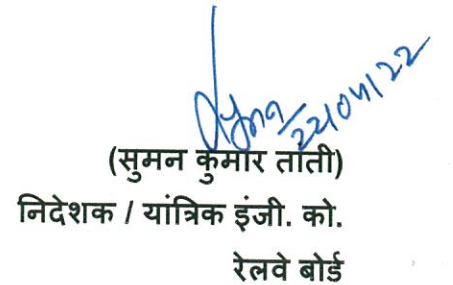 22/04/22
(सुमन कुमार तांती)
निदेशक / यांत्रिक इंजी. को.
रेलवे बोर्ड